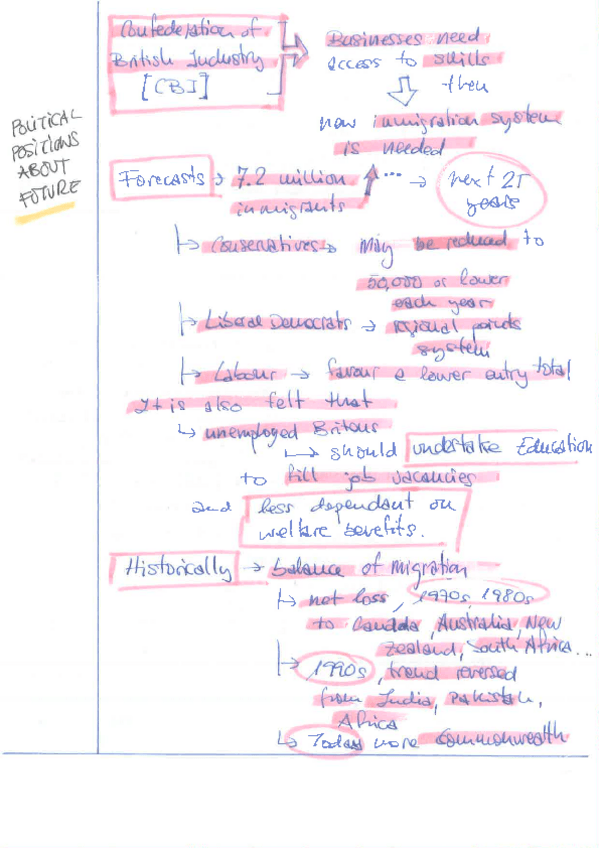 Confederation of
British Industry
[CBI]
Businesses need
access to skills
then
new immigration system
is needed
POLITICAL
POSITIONS
ABOUT
FUTURE
Forecasts → 7.2 million ↑ ... → next 25
immigrants years
↳ Conservatives → may be reduced to
50,000 or lower
each year
↳ Liberal Democrats → regional points
system
↳ Labour → favour a lower entry total
It is also felt that
↳ unemployed Britons
↳ should undertake Education
to fill job vacancies
and less dependant on
welfare benefits.
Historically → balance of migration
↳ net loss, 1970s, 1980s
to Canada, Australia, New
Zealand, South Africa...
↳ 1990s, trend reversed
from India, Pakistan,
Africa
↳ Today more Commonwealth